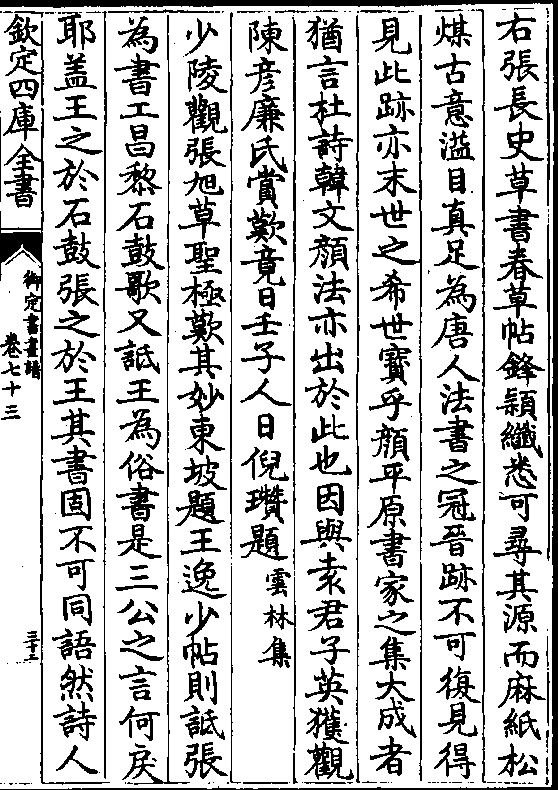 右張長史草書春草帖鋒頴纎悉可尋其源而麻紙松
煤古意溢目真足為唐人法書之冠晉跡不可復見得
見此跡亦末世之希世寶乎顔平原書家之集大成者
猶言杜詩韓文顔法亦出於此也因與袁君子英獲觀
陳彦廉氏賞歎竟日壬子人日倪瓚題雲林集
少陵觀張旭草聖極歎其妙東坡題王逸少帖則詆張
為書工昌黎石鼓歌又詆王為俗書是三公之言何戾
耶蓋王之於石鼓張之於王其書固不可同語然詩人
欽定四庫全書
御定書畫譜
卷七十三
三十二